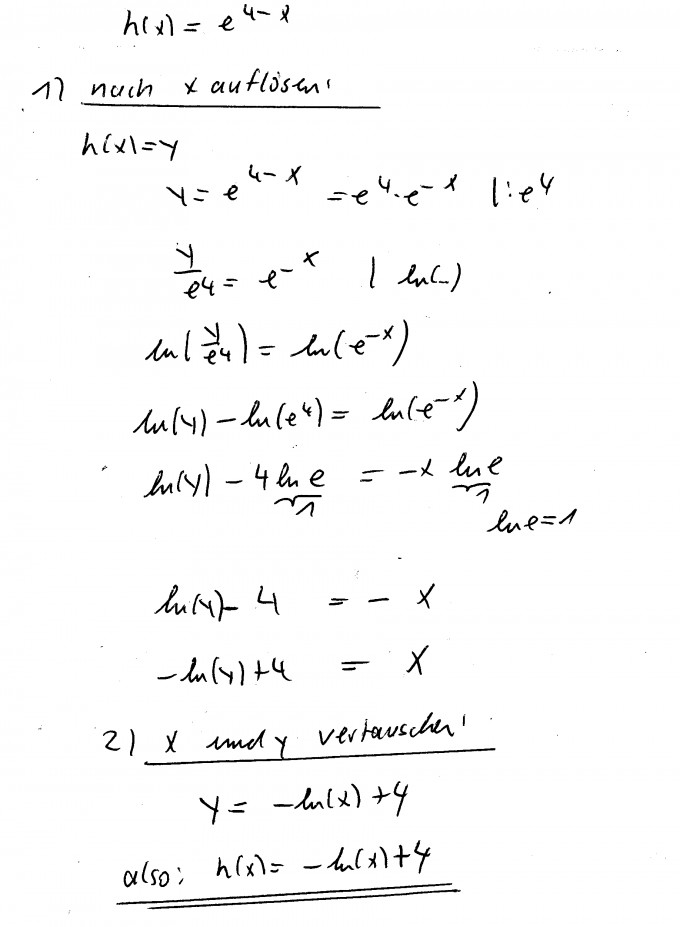 h(x) = e^{4-x}
1) nach x auflösen:
h(x)=y
y = e^{4-x} = e^4·e^{-x} |:e^4
y/e^4 = e^{-x} | ln(..)
ln(y/e^4) = ln(e^{-x})
ln(y) - ln(e^4) = ln(e^{-x})
ln(y) - 4 ln e = -x ln e
1 1
ln e = 1
ln(y) - 4 = - x
-ln(y) + 4 = x
2) x und y vertauschen:
y = -ln(x) + 4
also: h(x) = -ln(x) + 4